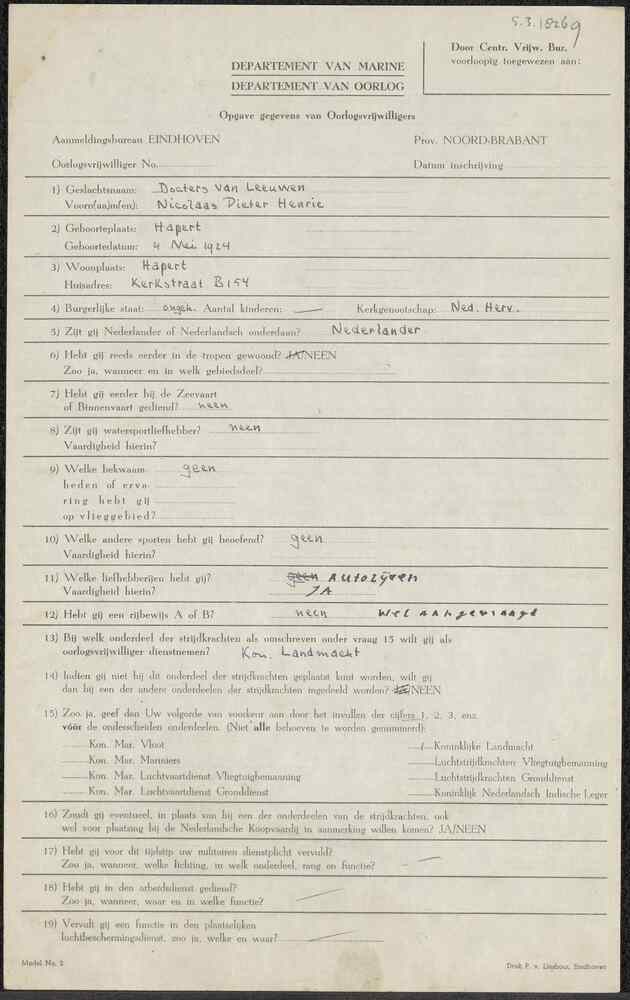 5.3.18269
Door Centr. Vrijw. Bur.
voorloopig toegewezen aan:
DEPARTEMENT VAN MARINE
DEPARTEMENT VAN OORLOG
Opgave gegevens van Oorlogsvrijwilligers
Aanmeldingsbureau EINDHOVEN
Prov. NOORD-BRABANT
Oorlogsvrijwilliger No.
Datum inschrijving
1) Geslachtsnaam: Docters van Leeuwen
Voorn(aa)m(en): Nicolaas Pieter Henrie
2) Geboorteplaats: Hapert
Geboortedatum: 4 Mei 1924
3) Woonplaats: Hapert
Huisadres: Kerkstraat B154
4) Burgerlijke staat: ongeh. Aantal kinderen: — Kerkgenootschap: Ned. Herv.
5) Zijt gij Nederlander of Nederlandsch onderdaan? Nederlander
6) Hebt gij reeds eerder in de tropen gewoond? JA/NEEN
Zoo ja, wanneer en in welk gebiedsdeel?
7) Hebt gij eerder bij de Zeevaart
of Binnenvaart gediend? neen
8) Zijt gij watersportliefhebber? neen
Vaardigheid hierin?
9) Welke bekwaam- geen
heden of erva-
ring hebt gij
op vlieggebied?
10) Welke andere sporten hebt gij beoefend? geen
Vaardigheid hierin?
11) Welke liefhebberijen hebt gij? geen Autorijden
Vaardigheid hierin? JA
12) Hebt gij een rijbewijs A of B? neen wel aangevraagd
13) Bij welk onderdeel der strijdkrachten als omschreven onder vraag 15 wilt gij als
oorlogsvrijwilliger dienstnemen? Kon. Landmacht
14) Indien gij niet bij dit onderdeel der strijdkrachten geplaatst kunt worden, wilt gij
dan bij een der andere onderdeelen der strijdkrachten ingedeeld worden? JA/NEEN
15) Zoo ja, geef dan Uw volgorde van voorkeur aan door het invullen der cijfers 1, 2, 3, enz.
vóór de onderscheiden onderdeelen. (Niet alle behoeven te worden genummerd):
Kon. Mar. Vloot
1 Koninklijke Landmacht
Kon. Mar. Mariniers
Luchtstrijdkrachten Vliegtuigbemanning
Kon. Mar. Luchtvaartdienst Vliegtuigbemanning
Luchtstrijdkrachten Gronddienst
Kon. Mar. Luchtvaartdienst Gronddienst
Koninklijk Nederlandsch Indische Leger
16) Zoudt gij eventueel, in plaats van bij een der onderdeelen van de strijdkrachten, ook
wel voor plaatsing bij de Nederlandsche Koopvaardij in aanmerking willen komen? JA/NEEN
17) Hebt gij voor dit tijdstip uw militairen dienstplicht vervuld?
Zoo ja, wanneer, welke lichting, in welk onderdeel, rang en functie? —
18) Hebt gij in den arbeidsdienst gediend?
Zoo ja, wanneer, waar en in welke functie? —
19) Vervult gij een functie in den plaatselijken
luchtbeschermingsdienst, zoo ja, welke en waar? —
Model No. 2
Druk P. v. Lieshout, Eindhoven